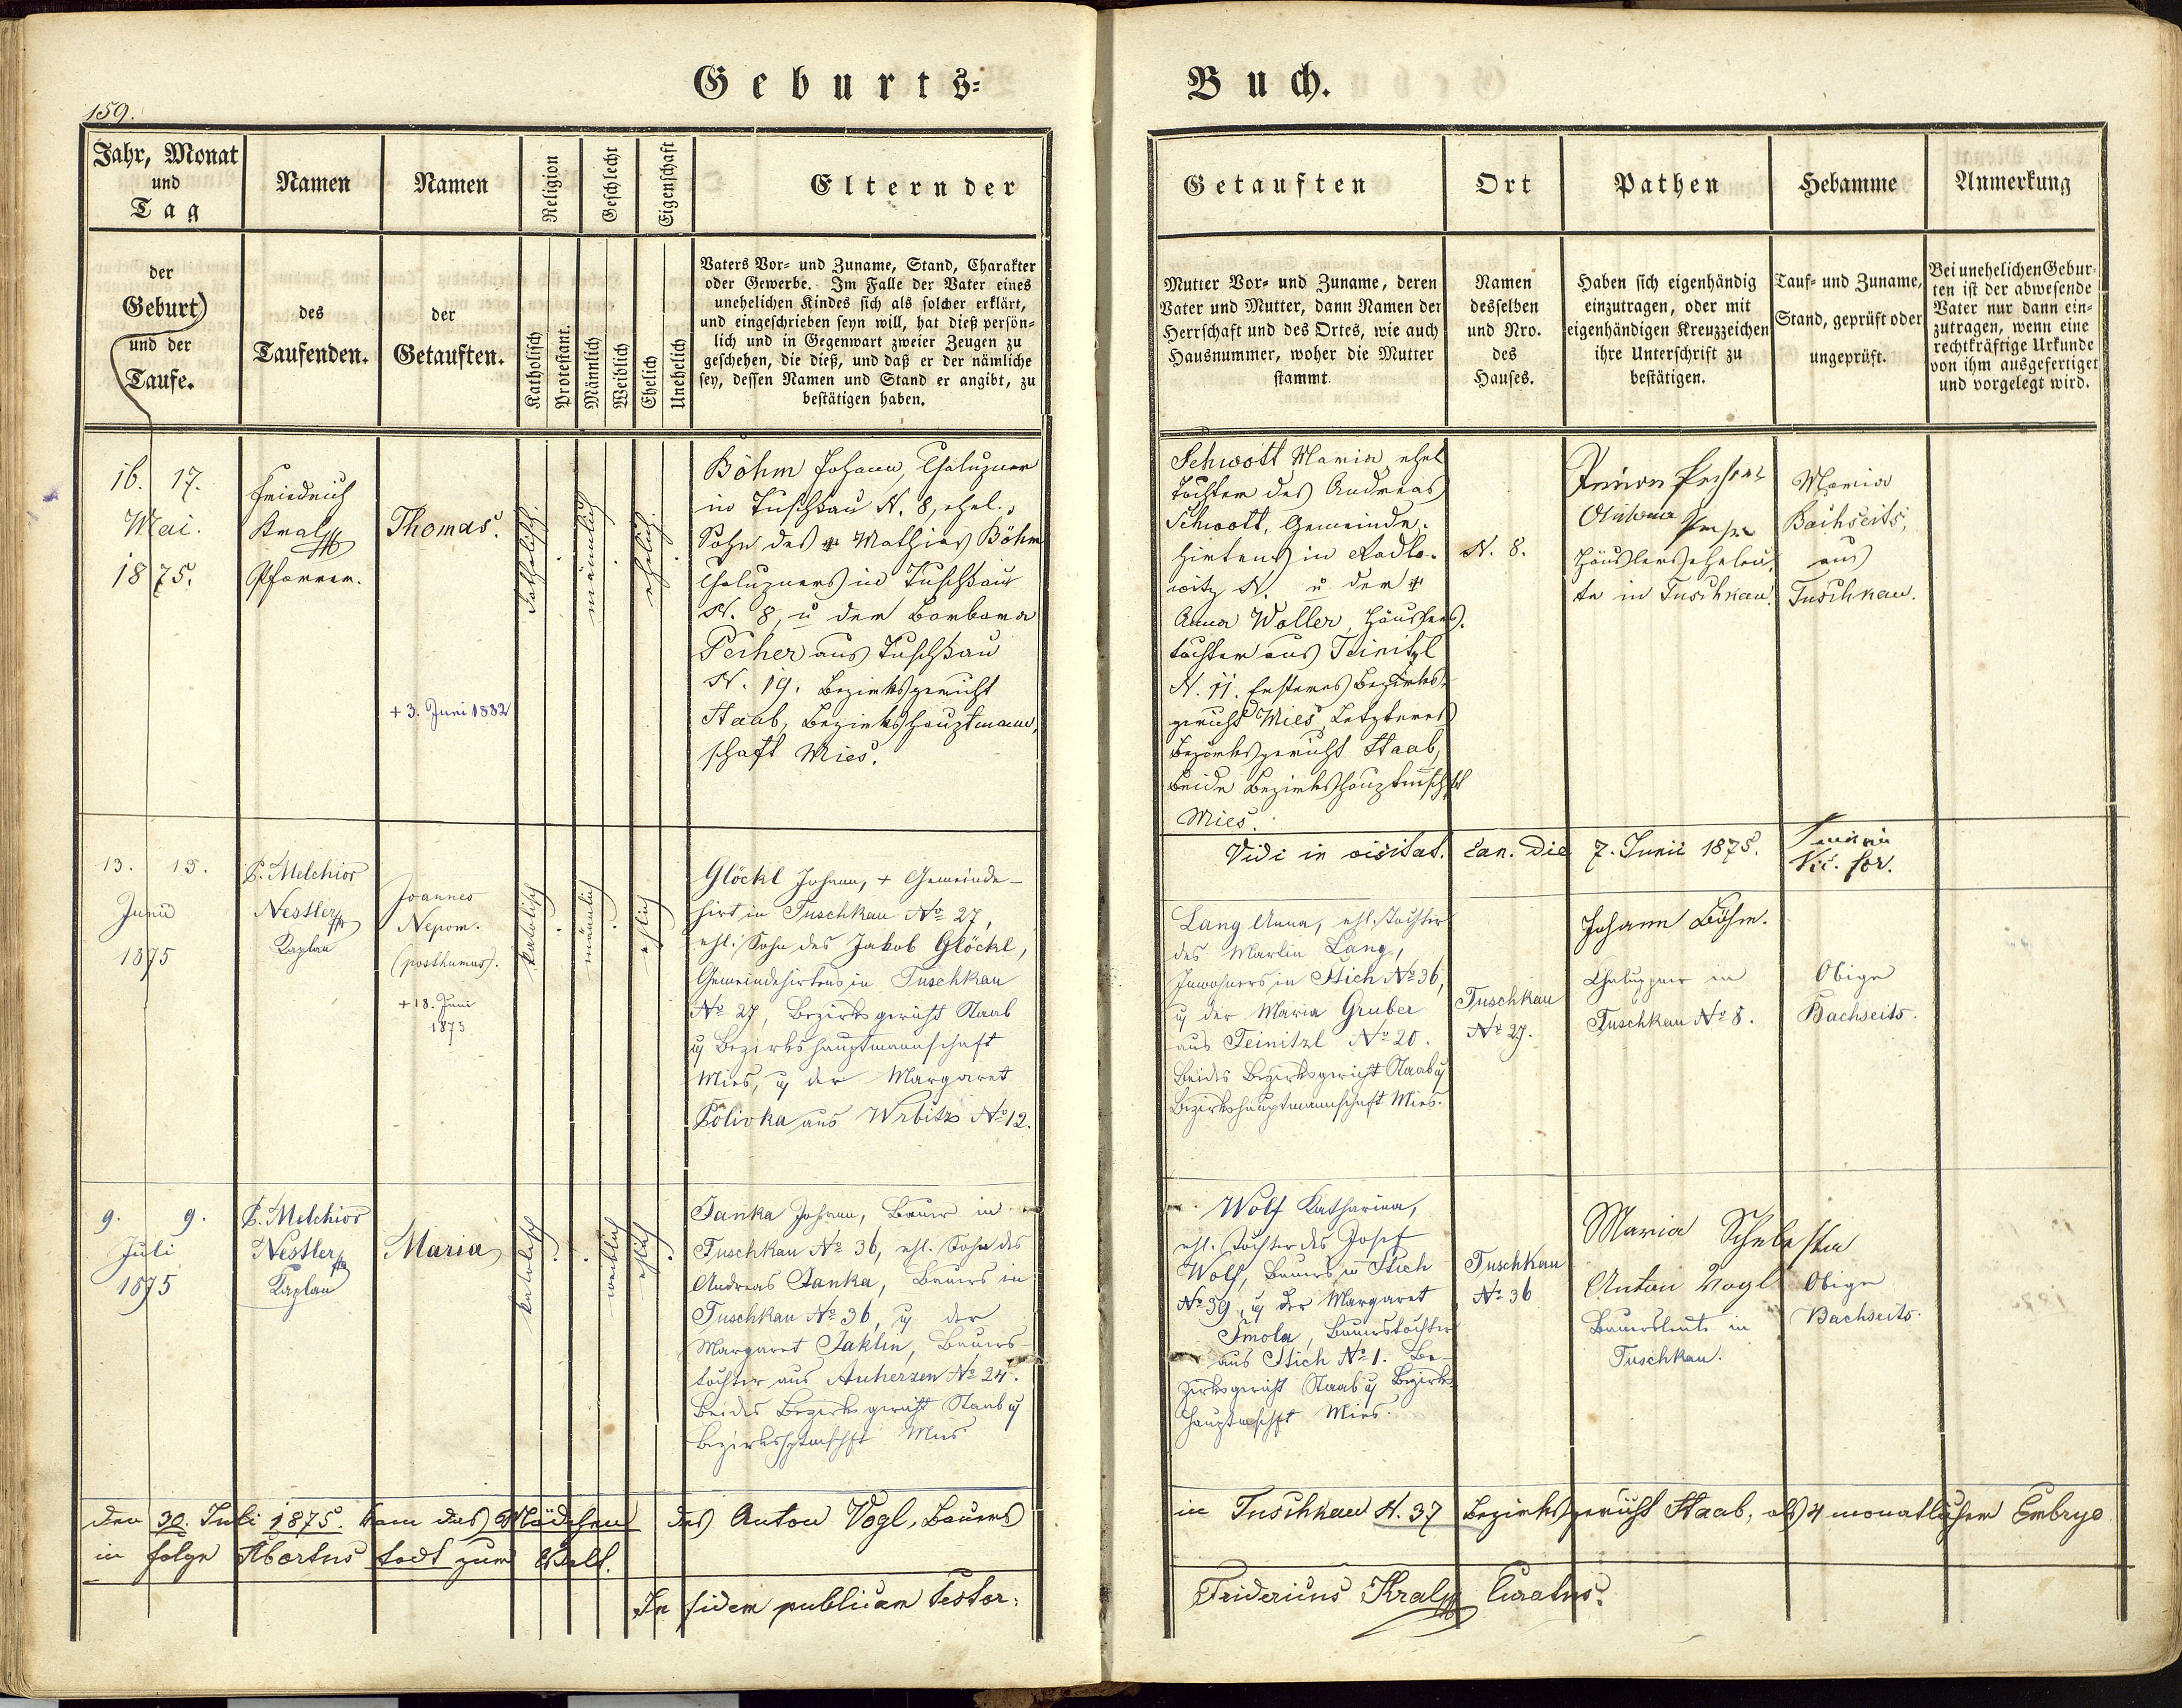 Geburts=
Buch.
159.
Jahr, Monat
und
Tag
Namen
Namen
Religion
Geschlecht
Eigenschaft
Eltern der
der
Geburt
und der
Taufe.
des
Taufenden.
der
Getauften.
Katholisch
Protestant.
Männlich
Weiblich
Ehelich
Unehelich
Vaters Vor= und Zuname, Stand, Charakter
oder Gewerbe. Im Falle der Vater eines
unehelichen Kindes sich als solcher erklärt,
und eingeschrieben seyn will, hat dieß persön=
lich und in Gegenwart zweier Zeugen zu
geschehen, die dieß, und daß er der nämliche
sey, dessen Namen und Stand er angibt, zu
bestätigen haben.
Getauften
Ort
Pathen
Hebamme
Anmerkung
Mutter Vor= und Zuname, deren
Vater und Mutter, dann Namen der
Herrschaft und des Ortes, wie auch
Hausnummer, woher die Mutter
stammt.
Namen
desselben
und Nro.
des
Hauses.
Haben sich eigenhändig
einzutragen, oder mit
eigenhändigen Kreuzzeichen
ihre Unterschrift zu
bestätigen.
Tauf= und Zuname,
Stand, geprüft oder
ungeprüft.
Bei unehelichen Gebur=
ten ist der abwesende
Vater nur dann ein=
zutragen, wenn eine
rechtkräftige Urkunde
von ihm ausgefertiget
und vorgelegt wird.
16. 17.
Mai.
1875.
Friedrich
Kral
Pfarrer.
Thomas.
+ 3. Juni 1882
katholisch.
männlich
ehelich.
Böhm Johann, Chaluzner
in Tuschkau N. 8, ehel.
Sohn des + Mathias Böhm
Chaluzners in Tuschkau
N. 8, u der Barbara
Pecher aus Tuschkau
N. 19. Bezirksgericht
Staab, Bezirkshauptmann,
schaft Mies.
Schwott Maria, ehel
Tochter des Andreas
Schwott, Gemeinde-
hirtens in Radlo-
witz N. u der +
Anna Woller, Häuslers-
tochter aus Teinitzl
N. 11. Ersteres Bezirks-
gericht Mies, Letzteres
Bezirksgericht Staab,
beide Bezirkshauptmschft
Mies.
N. 8.
Häuslerseheleu,
te in Tuschkau.
Maria
Bachseits,
aus
Tuschkau.
Vidi in visitat. can. die 7. Junii 1875.
Vic. for.
13. 15.
Junii
1875
P. Melchior
Nestler
Kaplan
Joannes
Nepom.
(posthumus).
+ 18. Juni
1875
katolisch
männlich
ehlich
Glöckl Johann, + Gemeinde-
hirt in Tuschkau No 27,
ehl. Sohn des Jakob Glöckl,
Gemeindehirtens in Tuschkau
No 27, Bezirksgericht Staab
u Bezirkshauptmannschaft
Mies, u der Margaret
Polivka aus Wrbitz No 12.
Lang Anna, ehl. Tochter
des Martin Lang,
Inwohners in Stich No 36,
u der Maria Gruber
aus Teinitzl No 20.
Beides Bezirksgericht Staab u
Bezirkshauptmannschaft Mies.
Tuschkau
No 27.
Johann Böhm.
Chalupner in
Tuschkau No 8.
Obige
Bachseits.
9. 9.
Juli
1875
P. Melchior
Nestler
Kaplan
Maria
katolisch
weiblich
ehlich
Janka Johann, Bauer in
Tuschkau No 36, ehl. Sohn des
Andreas Janka, Bauers in
Tuschkau No 36, u der
Margaret Jaklin, Bauers-
tochter aus Auherzen No 24.
Beides Bezirksgericht Staab u
Bezirkshptmschft Mies
Wolf Katharina,
ehl. Tochter des Josef
Wolf, Bauers in Stich
No 39, u der Margaret
Smola, Bauerstochter
aus Stich No 1. Be-
zirksgericht Staab u Bezirks-
hauptmschft Mies.
Tuschkau
No 36
Maria Schebesta
Anton Vogl
Bauersleute in
Tuschkau.
Obige
Bachseits.
Den 30. Juli 1875. kam das Mädchen des Anton Vogl, Bauers in Tuschkau N. 37 Bezirksgericht Staab, als 4 monatlicher Embryo
in folge Abortus todt zur Welt.
In fidem publicam testor:
Fridericus Kral Curatus.